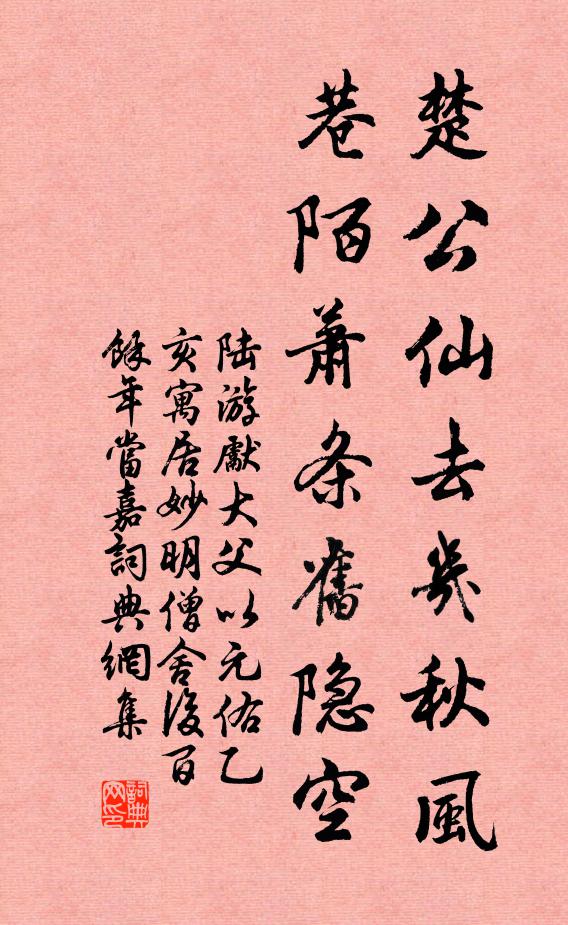 楚公仙去幾秋風
巷陌蕭条舊隐空
陆游獻大父以元佑乙
亥寓居妙明僧舍後百
餘年當嘉詞典網集
詞典
网印